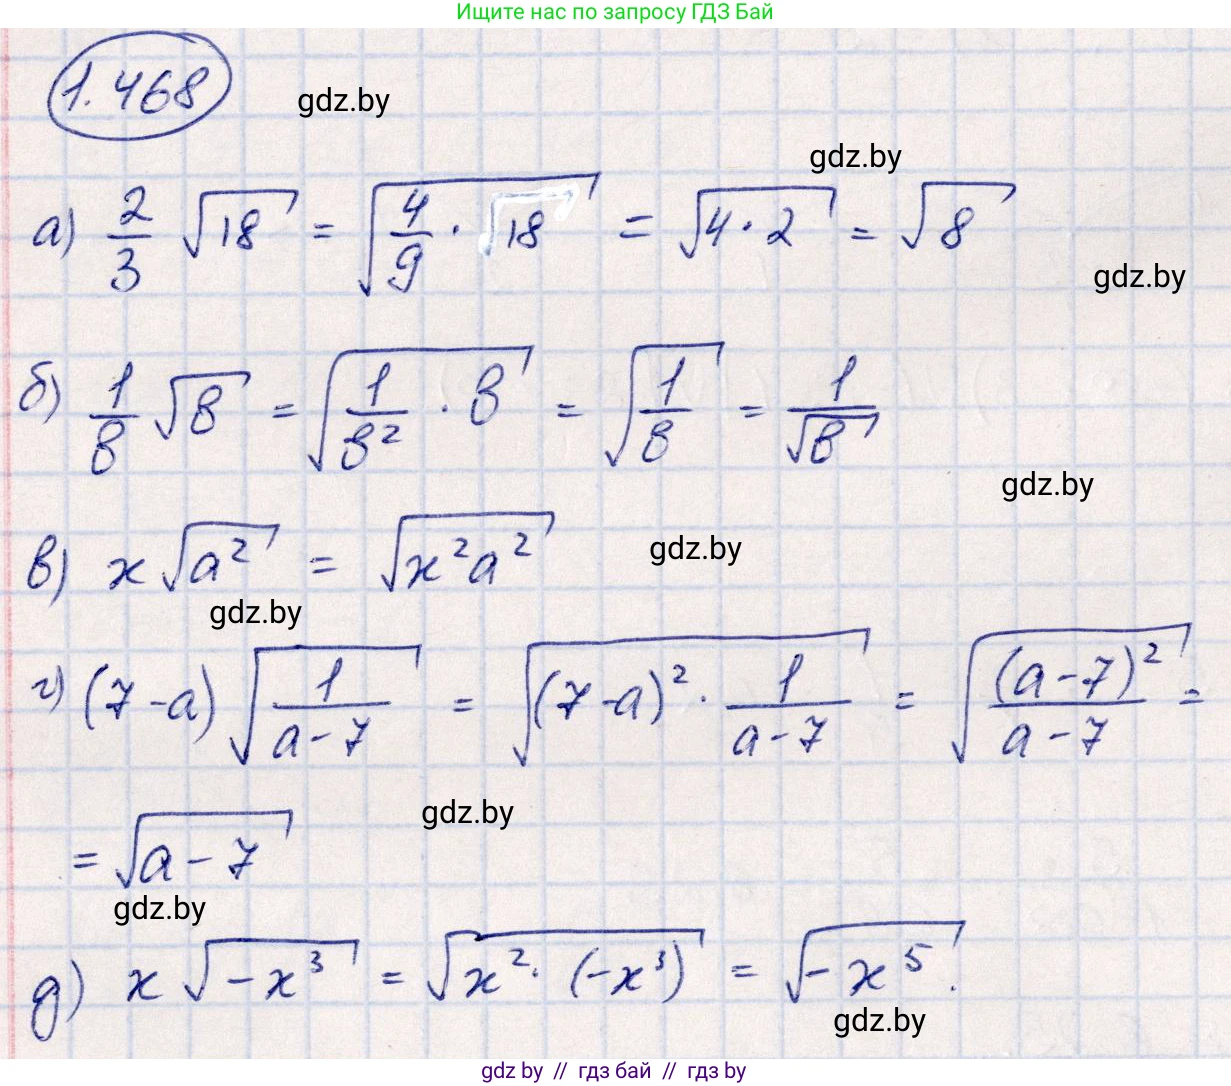 Ищите нас по запросу ГДЗ Бай
1.468
gdz.by
gdz.by
а) 2/3 √18 = √(4/9 · 18) = √(4·2) = √8
gdz.by
б) 1/в √в = √(1/в² · в) = √(1/в) = 1/√в
gdz.by
в) x √a² = √(x²a²)
gdz.by
gdz.by
г) (7-a) √(1/(a-7)) = √((7-a)² · 1/(a-7)) = √((a-7)²/(a-7)) =
gdz.by
= √(a-7)
gdz.by
д) x √(-x³) = √(x² · (-x³)) = √(-x⁵).
gdz.by
gdz by // гдз бай // гдз by